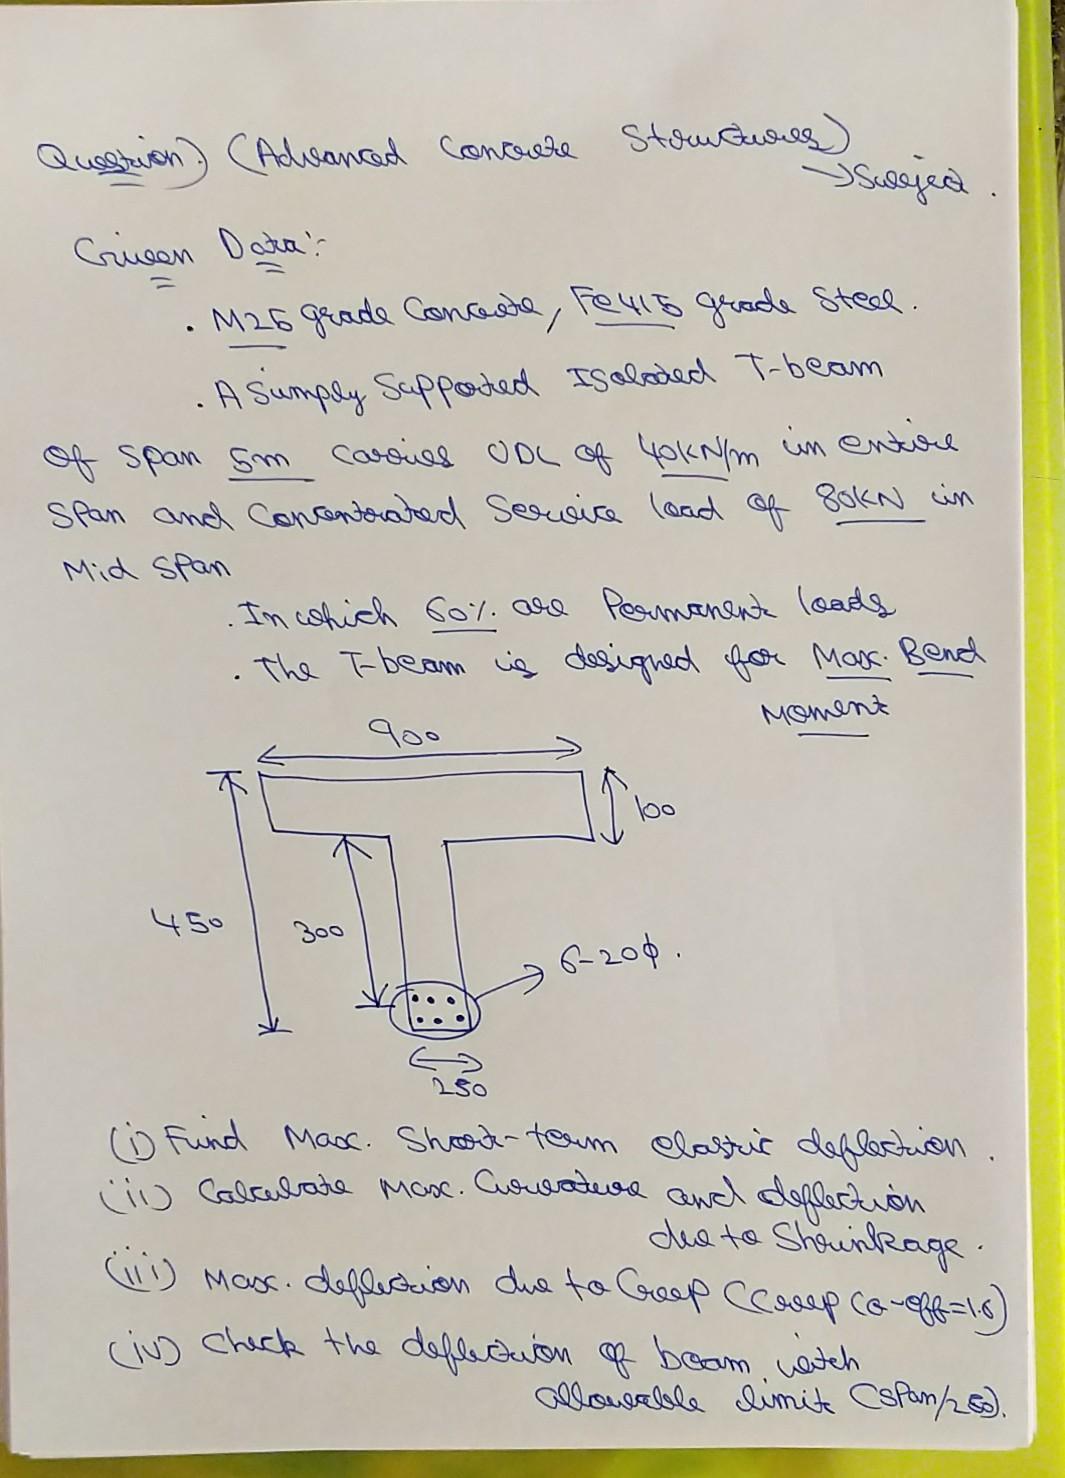 Question) (Advanced Concrete Structures)
→ Subject.
Given Data:-
. M25 grade Concrete, Fe415 grade Steel.
. A Simply Supported Isolated T-beam
Of Span 5m Carries UDL of 40KN/m in entire
Span and Concentrated Service load of 80KN in
Mid Span
. In which 60% are Permanent loads
. The T-beam is designed for Max. Bend
Moment
900
100
450
300
6-20ϕ.
250
(i) Find Max. Short-term elastic deflection.
(ii) Calculate Max. Curvature and deflection
due to Shrinkage.
(iii) Max. deflection due to Creep (Creep Co-eff=1.6)
(iv) Check the deflection of beam with
allowable limit (Span/250).